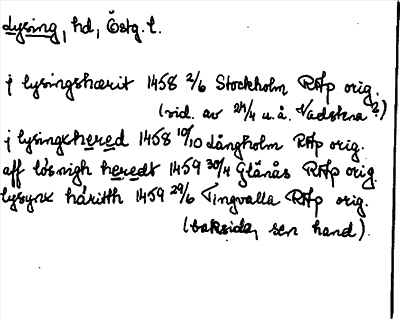 Lysing, hd, Östg. l.
j lysingshærit 1458 2/6 Stockholm RAp orig.
(vid. av 24/4 u.å. Vadstena?)
j lysingxhered 1458 10/10 Långholm RAp orig.
aff løsnigh heredt 1459 30/4 Glänås RAp orig.
lysynx häritth 1459 29/6 Tingvalla RAp orig.
(baksida, sen hand).